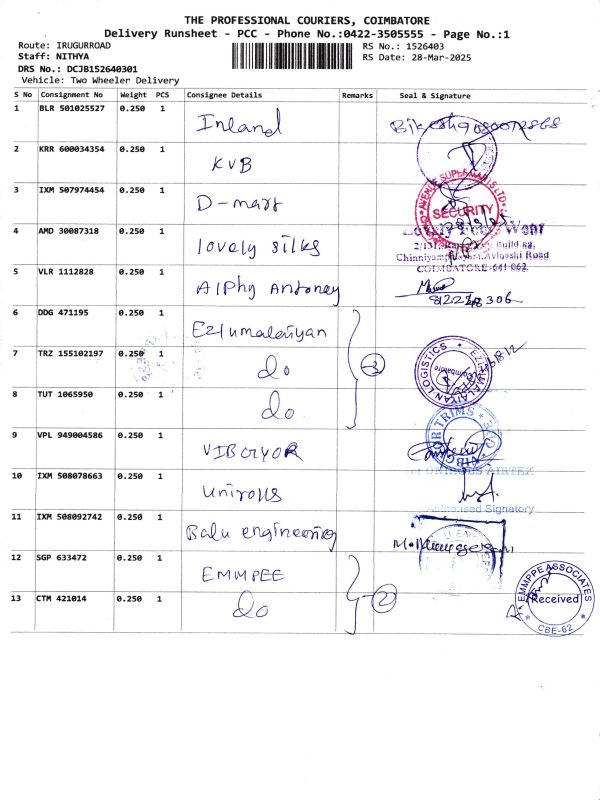 THE PROFESSIONAL COURIERS, COIMBATORE
Delivery Runsheet - PCC - Phone No.:0422-3505555 - Page No.:1
Route: IRUGURROAD
RS No.: 1526403
Staff: NITHYA
RS Date: 28-Mar-2025
DRS No.: DCJB152640301
Vehicle: Two Wheeler Delivery
S No Consignment No Weight PCS Consignee Details Remarks Seal & Signature
1 BLR 501025527 0.250 1 Inland
2 KRR 600034354 0.250 1 KVB
3 IXM 507974454 0.250 1 D-mart
SECURITY
4 AMD 30087318 0.250 1 lovely silks
COIMBATORE-641 062
5 VLR 1112828 0.250 1 Alphy Antoney
6 DDG 471195 0.250 1 Ezhumalaiyan
7 TRZ 155102197 0.250 1 do 3
EZHUMALAIYAN LOGISTICS Coimbatore
8 TUT 1065950 0.250 1 do
9 VPL 949004586 0.250 1 VIBGYOR
10 IXM 508078663 0.250 1 Unirous
Authorised Signatory
11 IXM 508092742 0.250 1 Balu engineering
12 SGP 633472 0.250 1 EMMPEE
13 CTM 421014 0.250 1 do 2
EMMPPE ASSOCIATES
Received
CBE-62